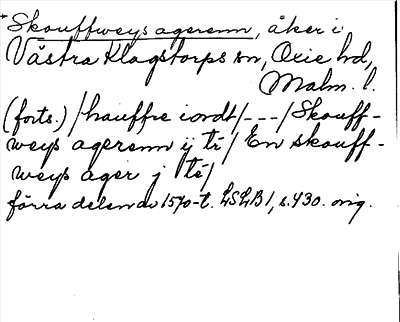 *Skouffweys agerenn, åker i
Västra Klagstorps sn, Oxie hd,
Malm. l.
(forts.) / hauffre iordt / - - - / Skouff-
weys agerenn ij tr / En skouff-
weys ager j tr /
förra delen av 1570-t. LSLB 1, s. 430. orig.